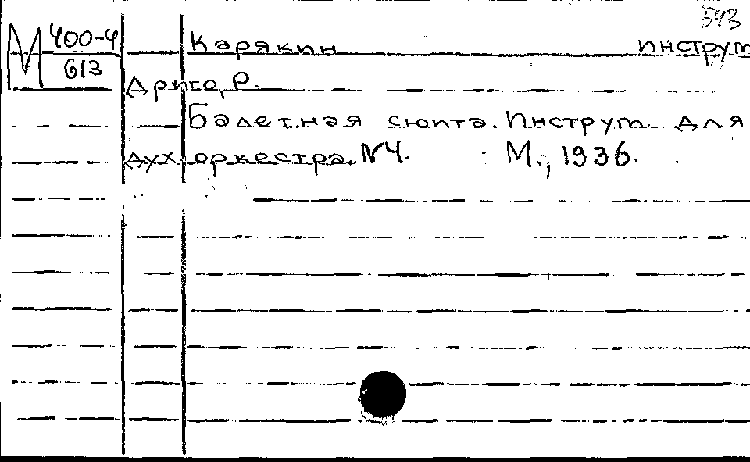 543
М 400-4
613
Карякин инструм
Дриго, Р.
Балетная сюита. Инструм. для
дух. оркестра. №4. М., 1936.